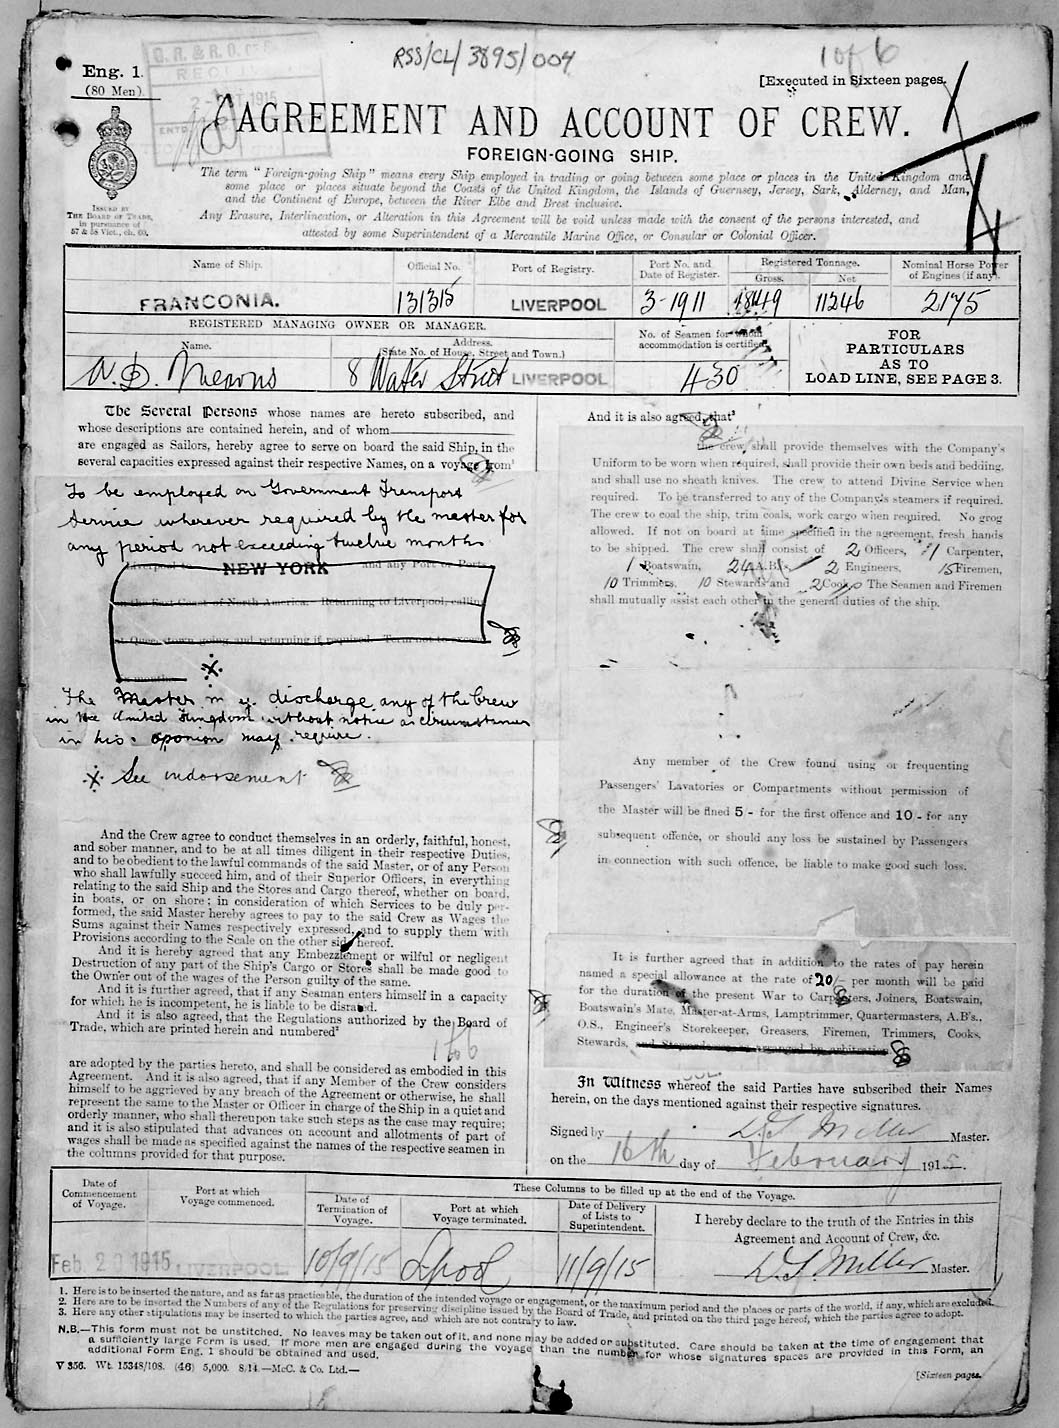 RSS/CL/3895/004
1 of 6
Eng. 1.
(80 Men).
[Executed in Sixteen pages.
AGREEMENT AND ACCOUNT OF CREW.
FOREIGN-GOING SHIP.
ISSUED BY
THE BOARD OF TRADE,
in pursuance of
57 & 58 Vict., ch. 60.
The term "Foreign-going Ship" means every Ship employed in trading or going between some place or places in the United Kingdom and
some place or places situate beyond the Coasts of the United Kingdom, the Islands of Guernsey, Jersey, Sark, Alderney, and Man,
and the Continent of Europe, between the River Elbe and Brest inclusive.
Any Erasure, Interlineation, or Alteration in this Agreement will be void unless made with the consent of the persons interested, and
attested by some Superintendent of a Mercantile Marine Office, or Consular or Colonial Officer.
Name of Ship. Official No. Port of Registry. Port No. and Date of Register. Registered Tonnage. Gross. Net Nominal Horse Power of Engines (if any).
FRANCONIA. 131315 LIVERPOOL 3-1911 11246 2175
REGISTERED MANAGING OWNER OR MANAGER.
Name. Address. (State No. of House, Street and Town.)
No. of Seamen for whom accommodation is certified
FOR PARTICULARS AS TO LOAD LINE, SEE PAGE 3.
8 Water Street LIVERPOOL 430
The Several Persons whose names are hereto subscribed, and
whose descriptions are contained herein, and of whom
are engaged as Sailors, hereby agree to serve on board the said Ship, in the
several capacities expressed against their respective Names, on a voyage from¹
To be employed on Government Transport
Service wherever required by the master for
any period not exceeding twelve months
Liverpool to NEW YORK and any Port or Ports
East Coast of North America. Returning to Liverpool, calling
at Queenstown going and returning if required.
The Master may discharge any of the Crew
in the United Kingdom without notice as circumstances
in his oponion may require.
See indorsement
And the Crew agree to conduct themselves in an orderly, faithful, honest,
and sober manner, and to be at all times diligent in their respective Duties,
and to be obedient to the lawful commands of the said Master, or of any Person
who shall lawfully succeed him, and of their Superior Officers, in everything
relating to the said Ship and the Stores and Cargo thereof, whether on board,
in boats, or on shore; in consideration of which Services to be duly per-
formed, the said Master hereby agrees to pay to the said Crew as Wages the
Sums against their Names respectively expressed, and to supply them with
Provisions according to the Scale on the other side hereof.
And it is hereby agreed that any Embezzlement or wilful or negligent
Destruction of any part of the Ship's Cargo or Stores shall be made good to
the Owner out of the wages of the Person guilty of the same.
And it is further agreed, that if any Seaman enters himself in a capacity
for which he is incompetent, he is liable to be disrated.
And it is also agreed, that the Regulations authorized by the Board of
Trade, which are printed herein and numbered²
1 to 6
are adopted by the parties hereto, and shall be considered as embodied in this
Agreement. And it is also agreed, that if any Member of the Crew considers
himself to be aggrieved by any breach of the Agreement or otherwise, he shall
represent the same to the Master or Officer in charge of the Ship in a quiet and
orderly manner, who shall thereupon take such steps as the case may require;
and it is also stipulated that advances on account and allotments of part of
wages shall be made as specified against the names of the respective seamen in
the columns provided for that purpose.
And it is also agreed, that³
the crew shall provide themselves with the Company's
Uniform to be worn when required, shall provide their own beds and bedding,
and shall use no sheath knives. The crew to attend Divine Service when
required. To be transferred to any of the Company's steamers if required.
The crew to coal the ship, trim coals, work cargo when required. No grog
allowed. If not on board at time specified in the agreement, fresh hands
to be shipped. The crew shall consist of 2 Officers, 1 Carpenter,
1 Boatswain, 24 A.B's, 2 Engineers, 15 Firemen,
10 Trimmers, 10 Stewards and 2 Cooks The Seamen and Firemen
shall mutually assist each other in the general duties of the ship.
Any member of the Crew found using or frequenting
Passengers' Lavatories or Compartments without permission of
the Master will be fined 5 - for the first offence and 10 - for any
subsequent offence, or should any loss be sustained by Passengers
in connection with such offence, be liable to make good such loss.
It is further agreed that in addition to the rates of pay herein
named a special allowance at the rate of 20/- per month will be paid
for the duration of the present War to Carpenters, Joiners, Boatswain,
Boatswain's Mate, Master-at-Arms, Lamptrimmer, Quartermasters, A.B's.,
O.S., Engineer's Storekeeper, Greasers, Firemen, Trimmers, Cooks,
Stewards,
In Witness whereof the said Parties have subscribed their Names
herein, on the days mentioned against their respective signatures.
Signed by D.S. Miller Master.
on the 16th day of February 1915.
Date of Commencement of Voyage. Port at which Voyage commenced. These Columns to be filled up at the end of the Voyage.
Date of Termination of Voyage. Port at which Voyage terminated. Date of Delivery of Lists to Superintendent. I hereby declare to the truth of the Entries in this Agreement and Account of Crew, &c.
Feb. 20 1915 LIVERPOOL. 10/9/15 L'pool 11/9/15 D.S. Miller Master.
1. Here is to be inserted the nature, and as far as practicable, the duration of the intended voyage or engagement, or the maximum period and the places or parts of the world, if any, which are excluded.
2. Here are to be inserted the Numbers of any of the Regulations for preserving discipline issued by the Board of Trade, and printed on the third page hereof, which the parties agree to adopt.
3. Here any other stipulations may be inserted to which the parties agree, and which are not contrary to law.
N.B.—This form must not be unstitched. No leaves may be taken out of it, and none may be added or substituted. Care should be taken at the time of engagement that
a sufficiently large Form is used. If more men are engaged during the voyage than the number for whose signatures spaces are provided in this Form, an
additional Form Eng. 1 should be obtained and used.
V 356. Wt. 15348/108. (46) 5,000. 8/14.—McC. & Co. Ltd.—
[Sixteen pages.